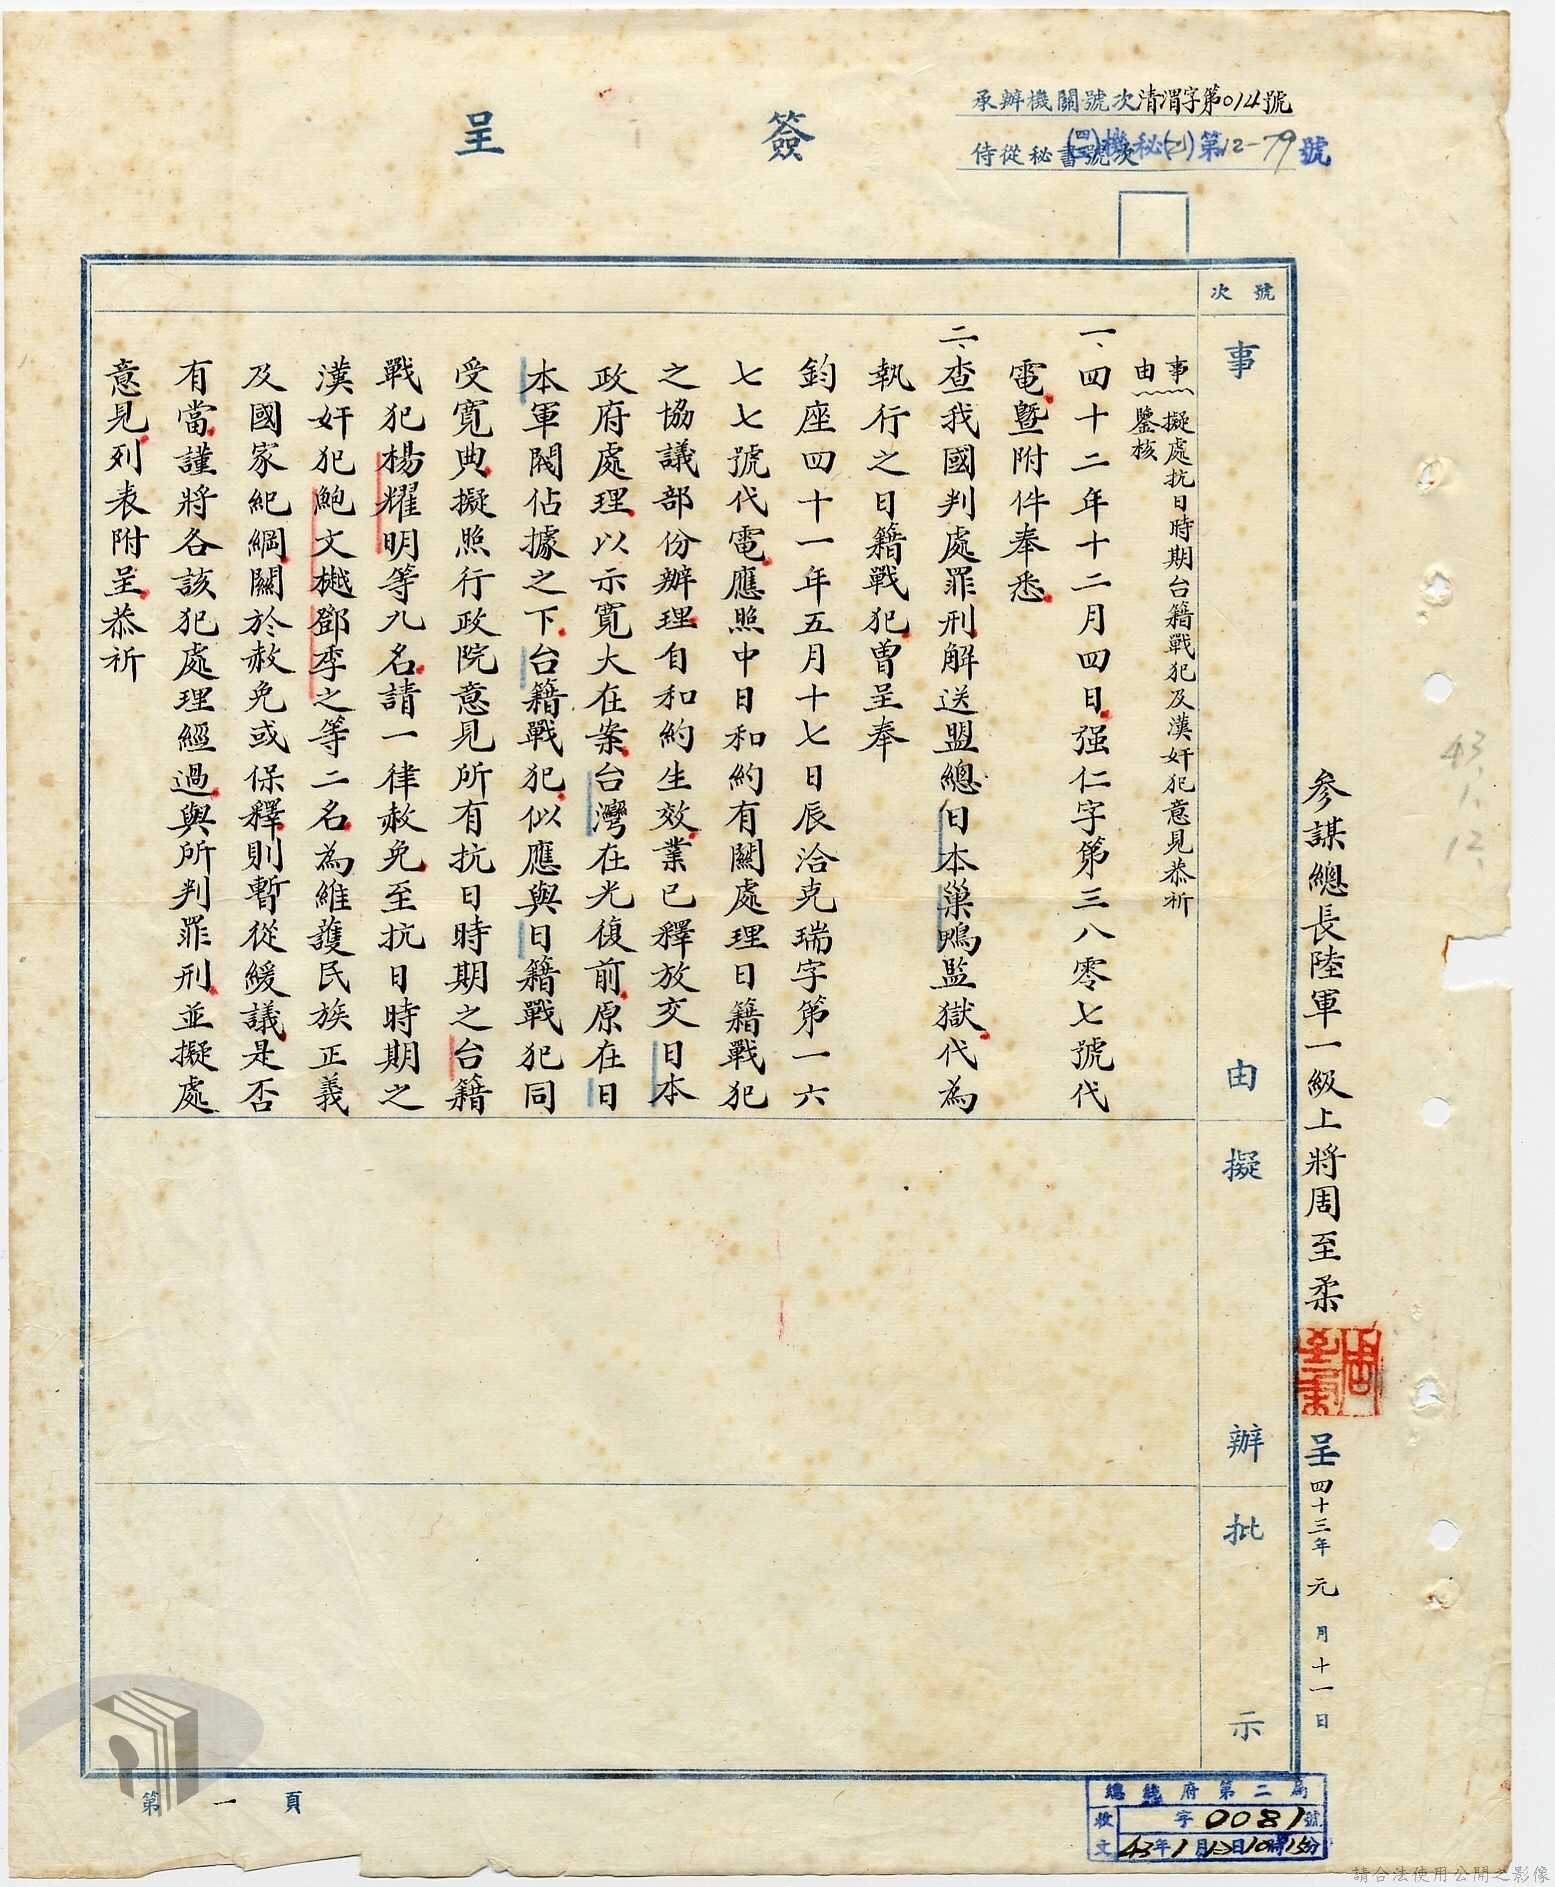 簽呈
承辦機關號次清渭字第014號
侍從秘書號次
機秘(乙)第12-79號
參謀總長陸軍一級上將周至柔
周至柔
呈四十三年元月十一日
43.1.12.
號次
事由
擬辦
批示
事由
擬處抗日時期台籍戰犯及漢奸犯意見恭祈
鑒核
一、四十二年十二月四日強仁字第三八零七號代
電暨附件奉悉
二、查我國判處罪刑解送盟總日本巢鴨監獄代為
執行之日籍戰犯曾呈奉
鈞座四十一年五月十七日辰洽克瑞字第一六
七七號代電應照中日和約有關處理日籍戰犯
之協議部份辦理自和約生效業已釋放交日本
政府處理以示寬大在案台灣在光復前原在日
本軍閥佔據之下台籍戰犯似應與日籍戰犯同
受寬典擬照行政院意見所有抗日時期之台籍
戰犯楊耀明等九名請一律赦免至抗日時期之
漢奸犯鮑文樾鄧季之等二名為維護民族正義
及國家紀綱關於赦免或保釋則暫從緩議是否
有當謹將各該犯處理經過與所判罪刑並擬處
意見列表附呈恭祈
第一頁
總統府第二局
收文
字0081號
43年1月12日10時15分
請合法使用公開之影像